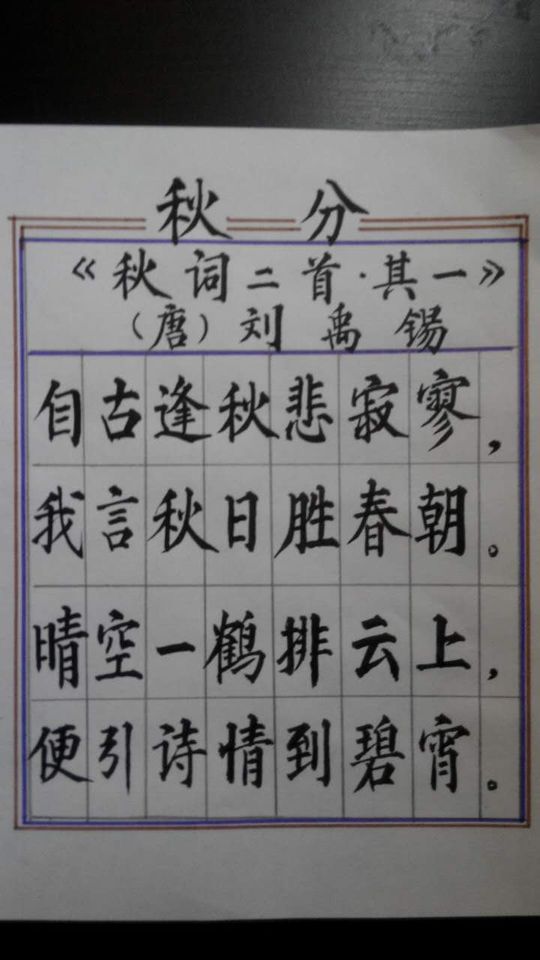 秋分
《秋词二首·其一》
（唐）刘禹锡
自古逢秋悲寂寥，
我言秋日胜春朝。
晴空一鹤排云上，
便引诗情到碧宵。